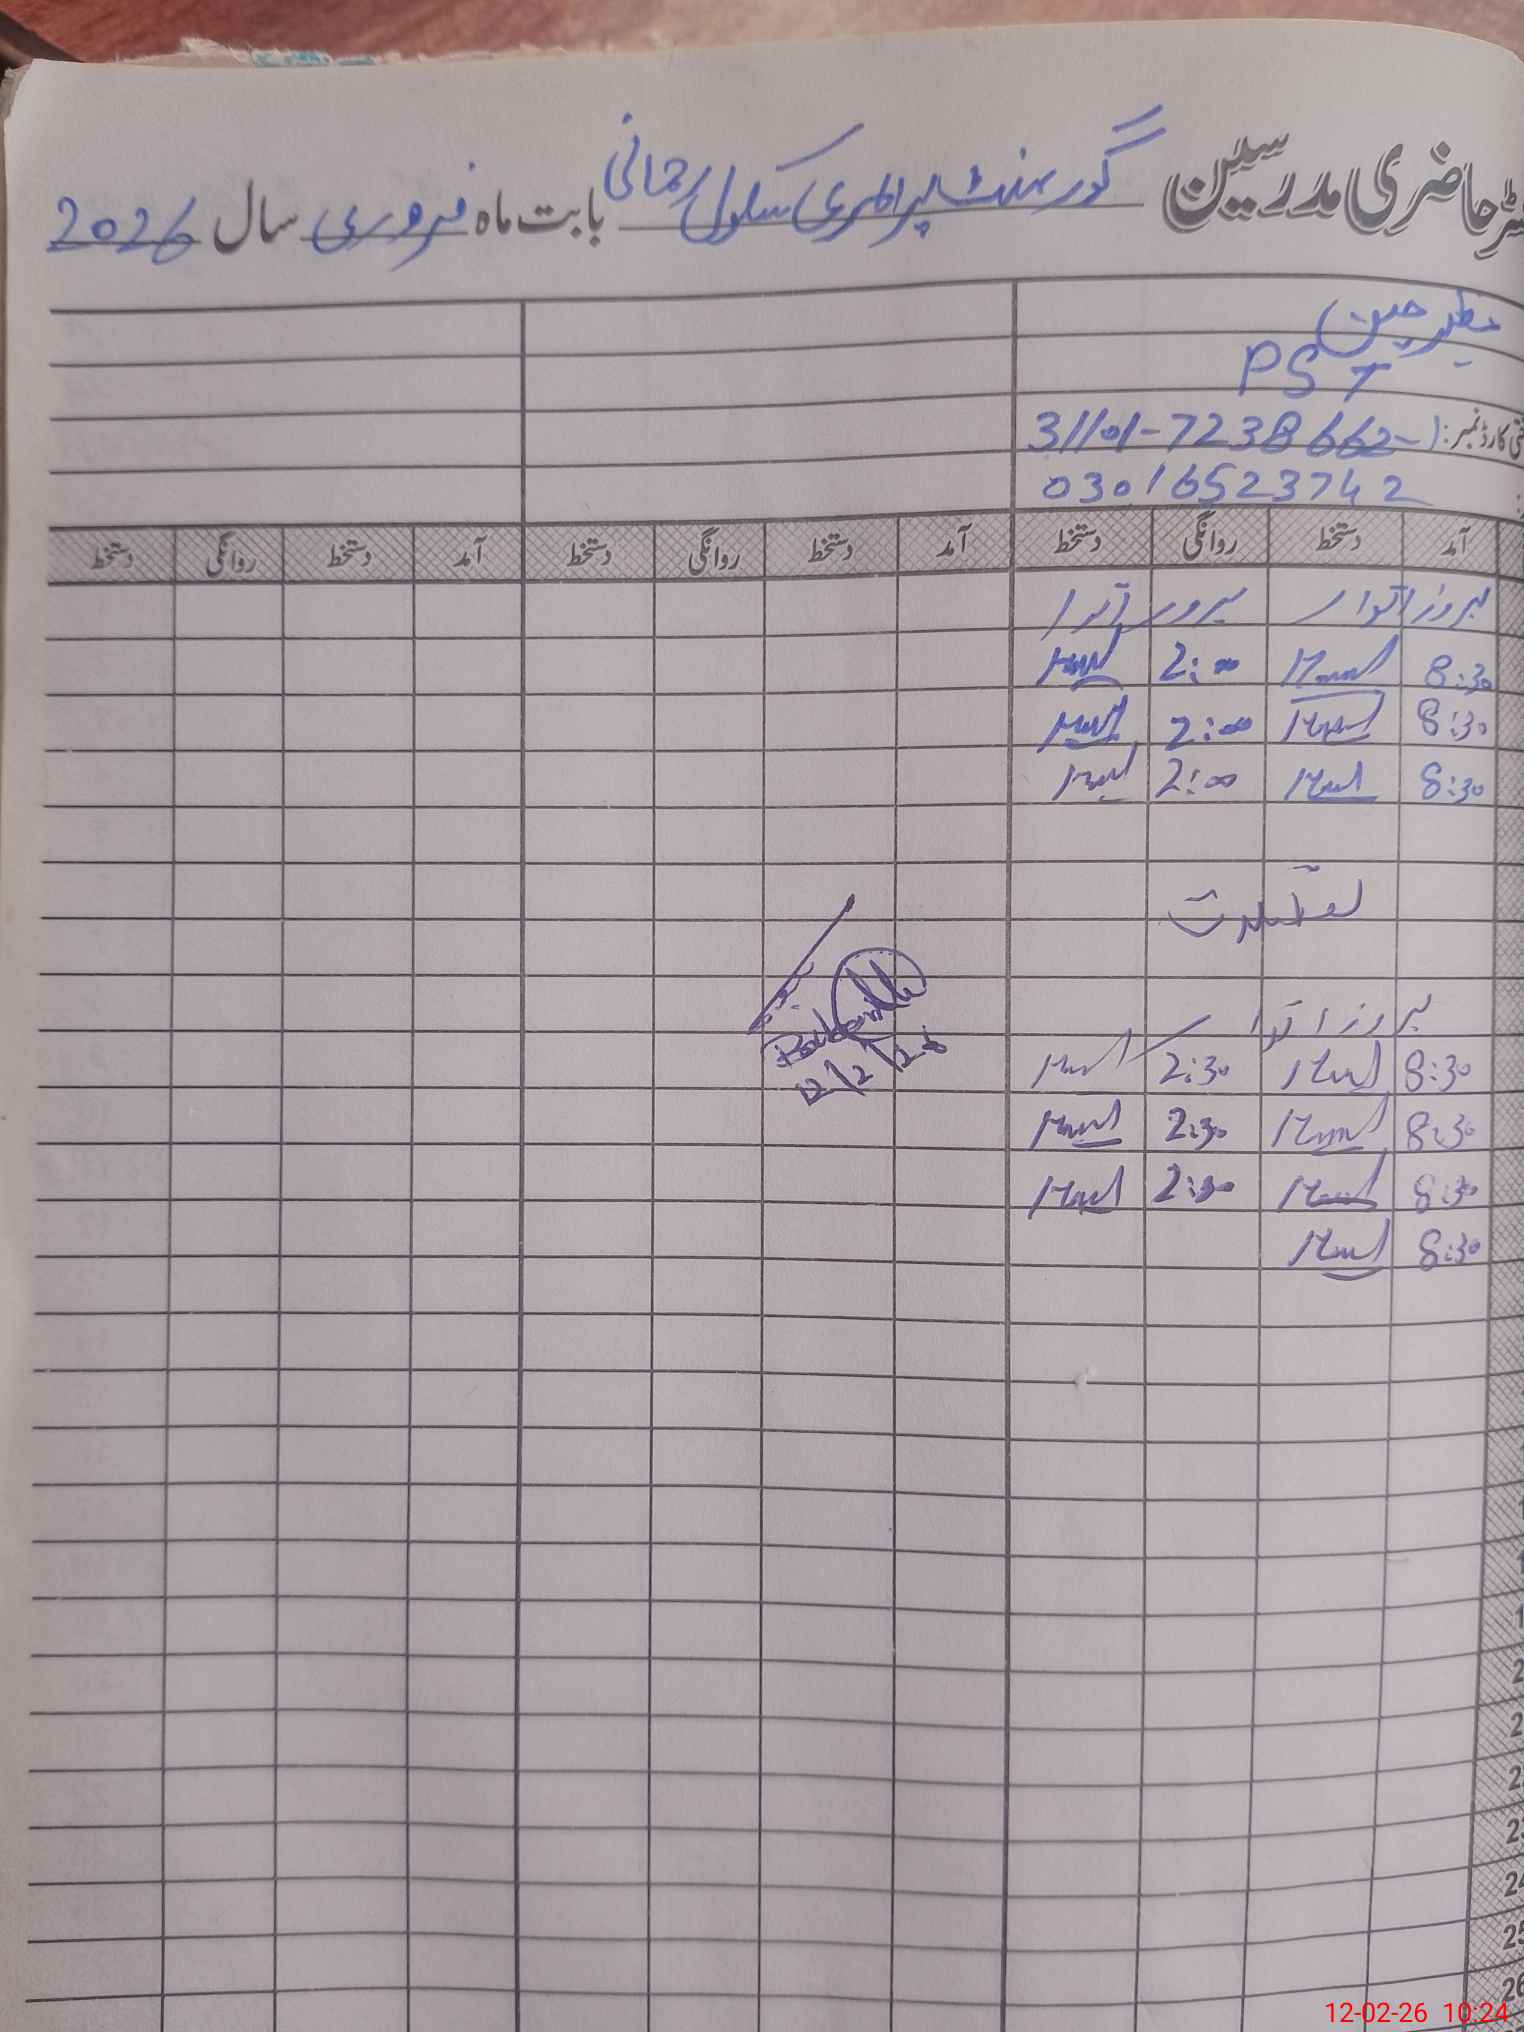 حاضری مدرسین گورنمنٹ پرائمری سکول رحمانی بابت ماہ فروری سال 2026
PST
کارڈ نمبر: 31101-7238662-1
03016523742
آمد دستخط روانگی دستخط آمد دستخط روانگی دستخط آمد دستخط روانگی دستخط
بروز اتوار بروز اتوار
8:30 2:00
8:30 2:00
8:30 2:00
تعطیلات
بروز اتوار
8:30 2:30
8:30 2:30
8:30 2:30
8:30
12/2/26
24
25
26
12-02-26 10:24